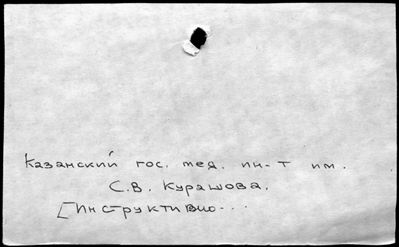 Казанский гос. мед. ин-т им.
С.В. Курашова.
[Инструктивно...